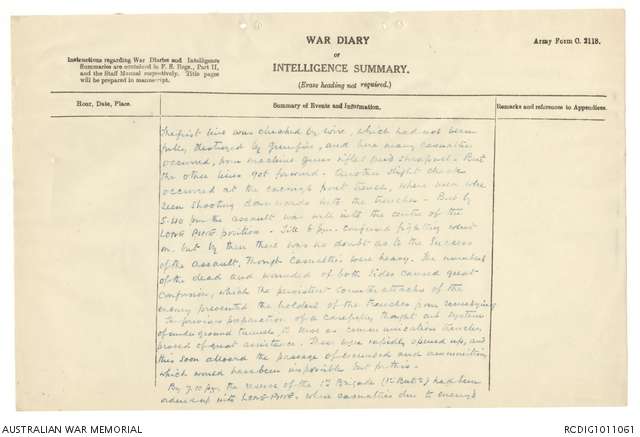 WAR DIARY
OR
INTELLIGENCE SUMMARY.
(Erase heading not required.)
Army Form C. 2118.
Instructions regarding War Diaries and Intelligence
Summaries are contained in F. S. Regs., Part II,
and the Staff Manual respectively. Title pages
will be prepared in manuscript.
Hour, Date, Place.
Summary of Events and Information.
Remarks and references to Appendices.
The first line was checked by wire, which had not been
fully destroyed by gunfire, and here many casualties
occurred, from machine guns rifles and shrapnel. But
the other lines got forward. Another slight check
occurred at the enemy's front trench, where men were
seen shooting downwards into the trenches. But by
5.40 pm the assault was well into the centre of the
LONE PINE position. Till 6 pm confused fighting went
on, but by then there was no doubt as to the success
of the assault, though casualties were heavy. The number
of the dead and wounded of both sides caused great
confusion, which the persistent counter attacks of the
enemy prevented the holders of the trenches from remedying
The previous preparation of a carefully thought out system
of underground tunnels to serve as communication trenches
proved of great assistance. These were rapidly opened up, and
this soon allowed the passage of wounded and ammunition,
which would have been impossible but for this.
By 7.10 pm the reserve of the 1st Brigade (1st Battn) had been
ordered up into LONE PINE, where casualties due to enemy's
AUSTRALIAN WAR MEMORIAL
RCDIG1011061